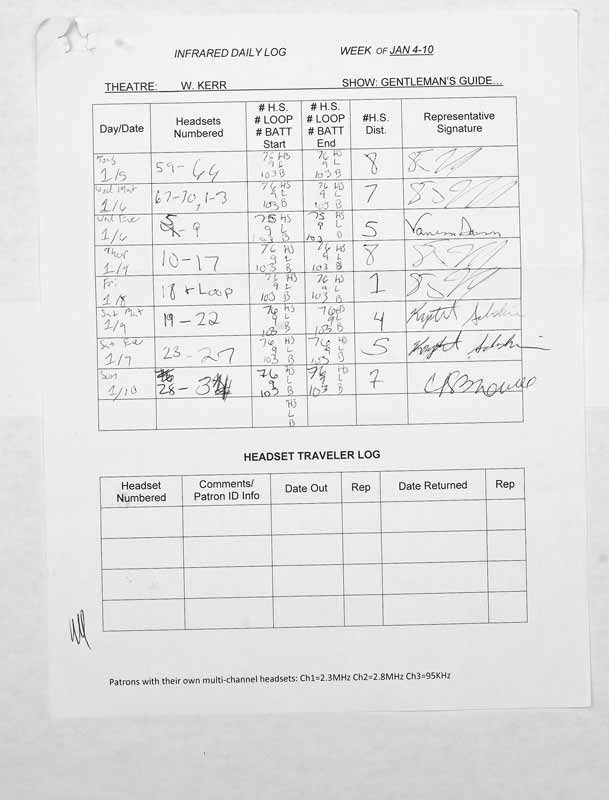 INFRARED DAILY LOG WEEK OF JAN 4-10
THEATRE: W. KERR SHOW: GENTLEMAN'S GUIDE...
Day/Date
Headsets
Numbered
# H.S.
# LOOP
# BATT
Start
# H.S.
# LOOP
# BATT
End
#H.S.
Dist.
Representative
Signature
1/5
59-64
76 HS
9 L
103 B
76 HS
9 L
103 B
8
Wed Mat
1/6
67-70, 1-3
76 HS
9 L
103 B
76 HS
9 L
103 B
7
Wed Eve
1/6
5-9
75 HS
9 L
103 B
75 HS
9 L
103 B
5
Thur
1/7
10-17
76 HS
9 L
103 B
76 HS
9 L
103 B
8
Fri
1/8
18 + Loop
76 HS
9 L
103 B
76 HS
9 L
103 B
1
Sat Mat
1/9
19-22
76 HS
9 L
103 B
76 HS
9 L
103 B
4
Sat Eve
1/9
23-27
76 HS
9 L
103 B
76 HS
9 L
103 B
5
Sun
1/10
28-34
76 HS
9 L
103 B
76 HS
9 L
103 B
7
HS
L
B
HEADSET TRAVELER LOG
Headset
Numbered
Comments/
Patron ID Info
Date Out
Rep
Date Returned
Rep
Patrons with their own multi-channel headsets: Ch1=2.3MHz Ch2=2.8MHz Ch3=95KHz